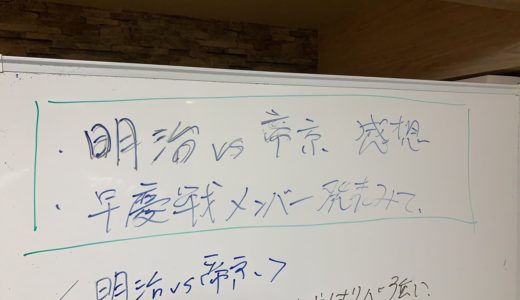 ・明治 vs 帝京 感想
・早慶戦メンバー発表みて、
<明治 vs 帝京>